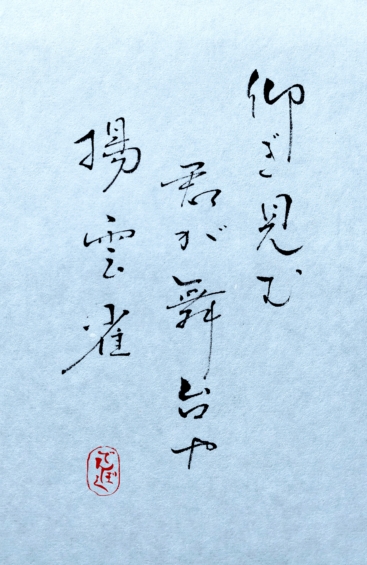 仰ぎ見む
君が舞台や
揚雲雀